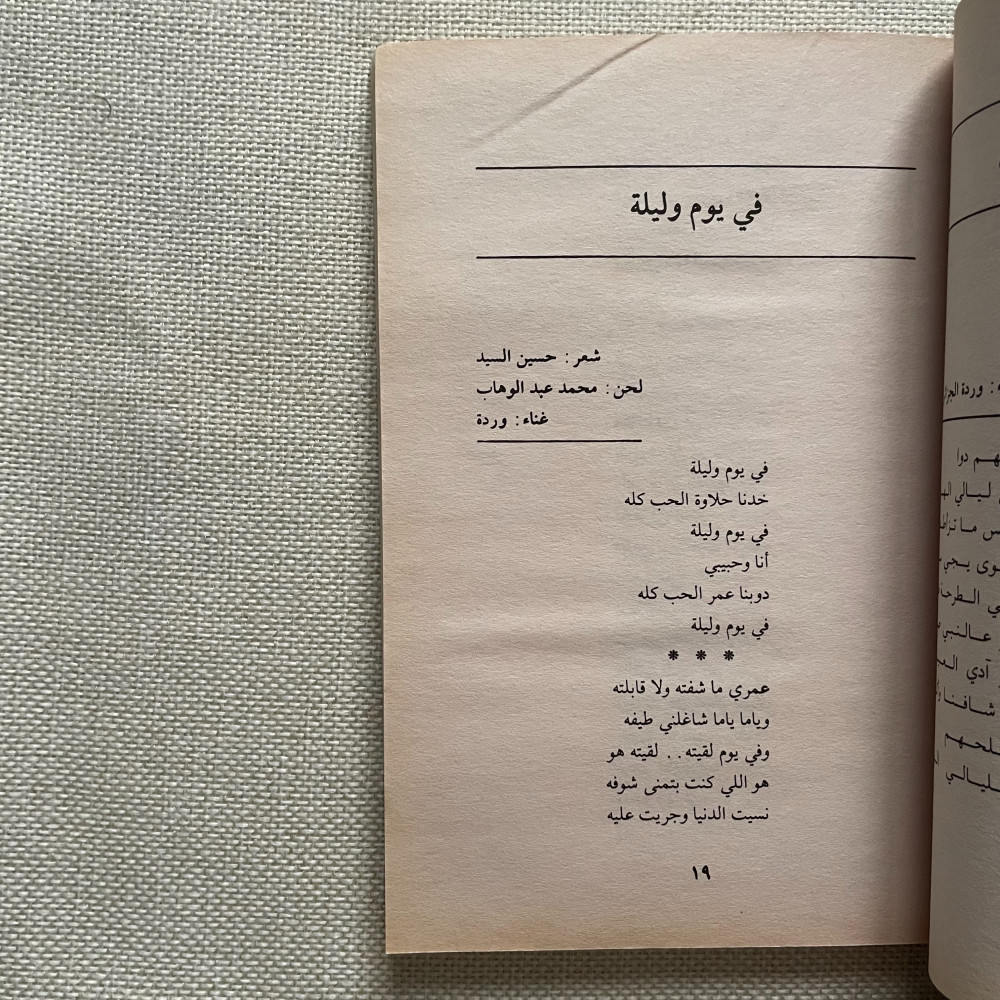 في يوم وليلة
شعر: حسين السيد
لحن: محمد عبد الوهاب
غناء: وردة
في يوم وليلة
خدنا حلاوة الحب كله
في يوم وليلة
أنا وحبيبي
دوبنا عمر الحب كله
في يوم وليلة
* * *
عمري ما شفته ولا قابلته
وياما ياما شاغلني طيفه
وفي يوم لقيته.. لقيته هو
هو اللي كنت بتمنى شوفه
نسيت الدنيا وجريت عليه
١٩
وردة
دوا
ليالي
ما
يجي
الطرحة
عالنبي
آدي
شافنا